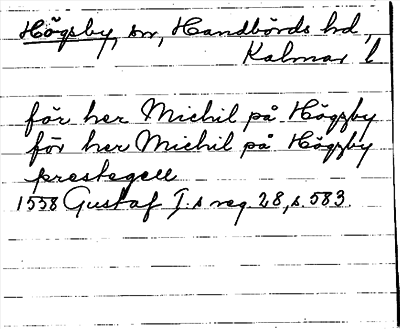 Högsby, sn, Handbörds hd,
Kalmar l
för her Michil på Högzby
för her Michil på Högzby
prestegell
1558 Gustaf I.s reg. 28, s. 583.